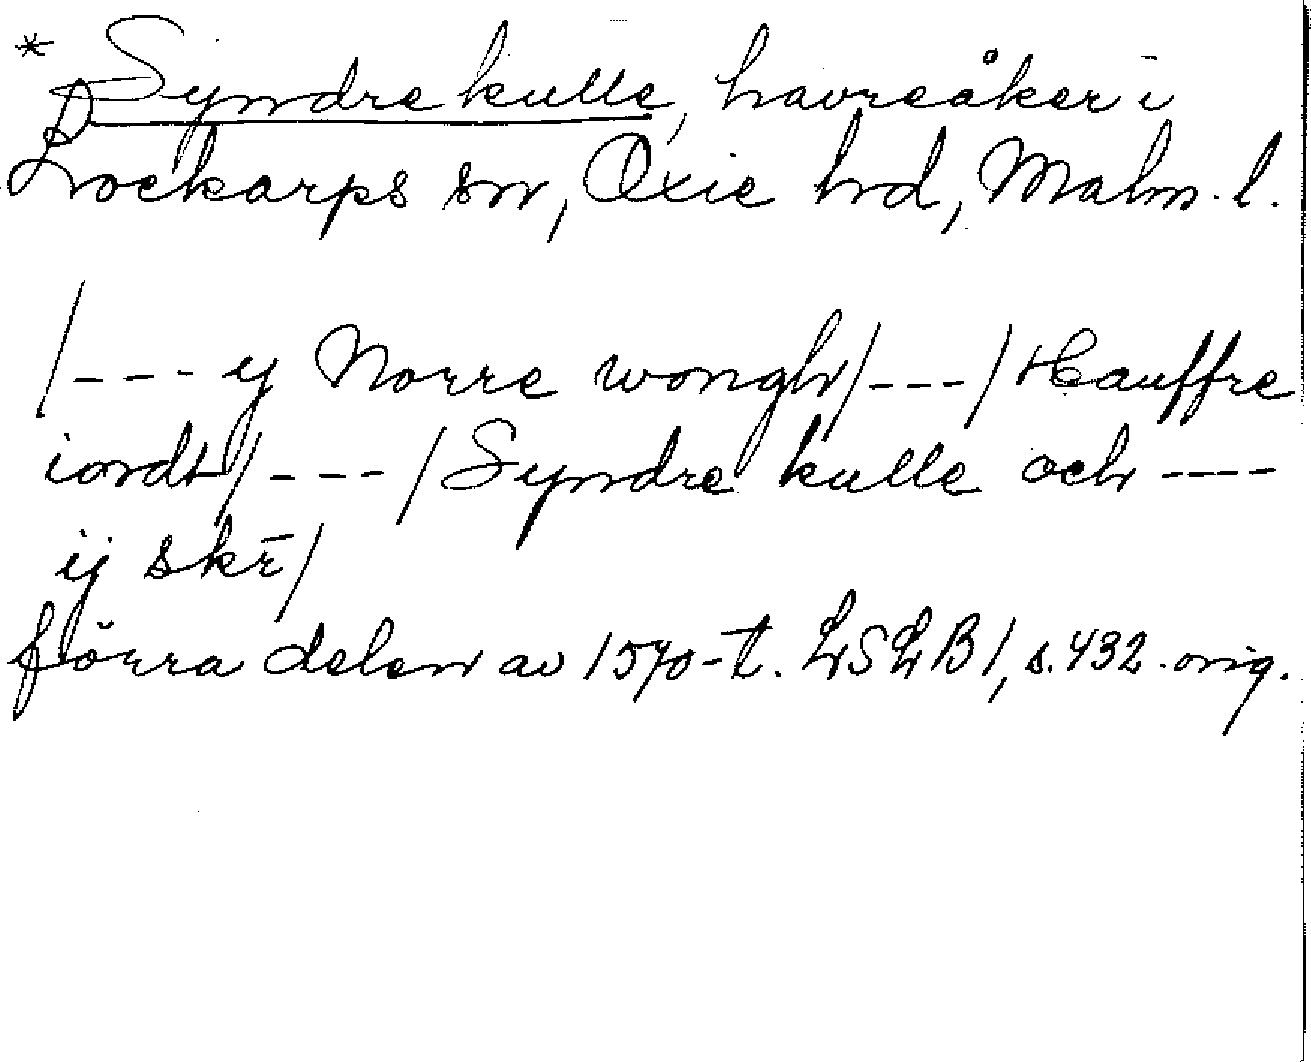 * Syndre kulle, havreåker i
Lockarps sn, Oxie hd, Malm. l.
/--- y Norre wongh/---/Hauffre
iordt/---/Syndre kulle och ----
ij skē/
förra delen av 1570-t. LSLB1, s. 432. orig.